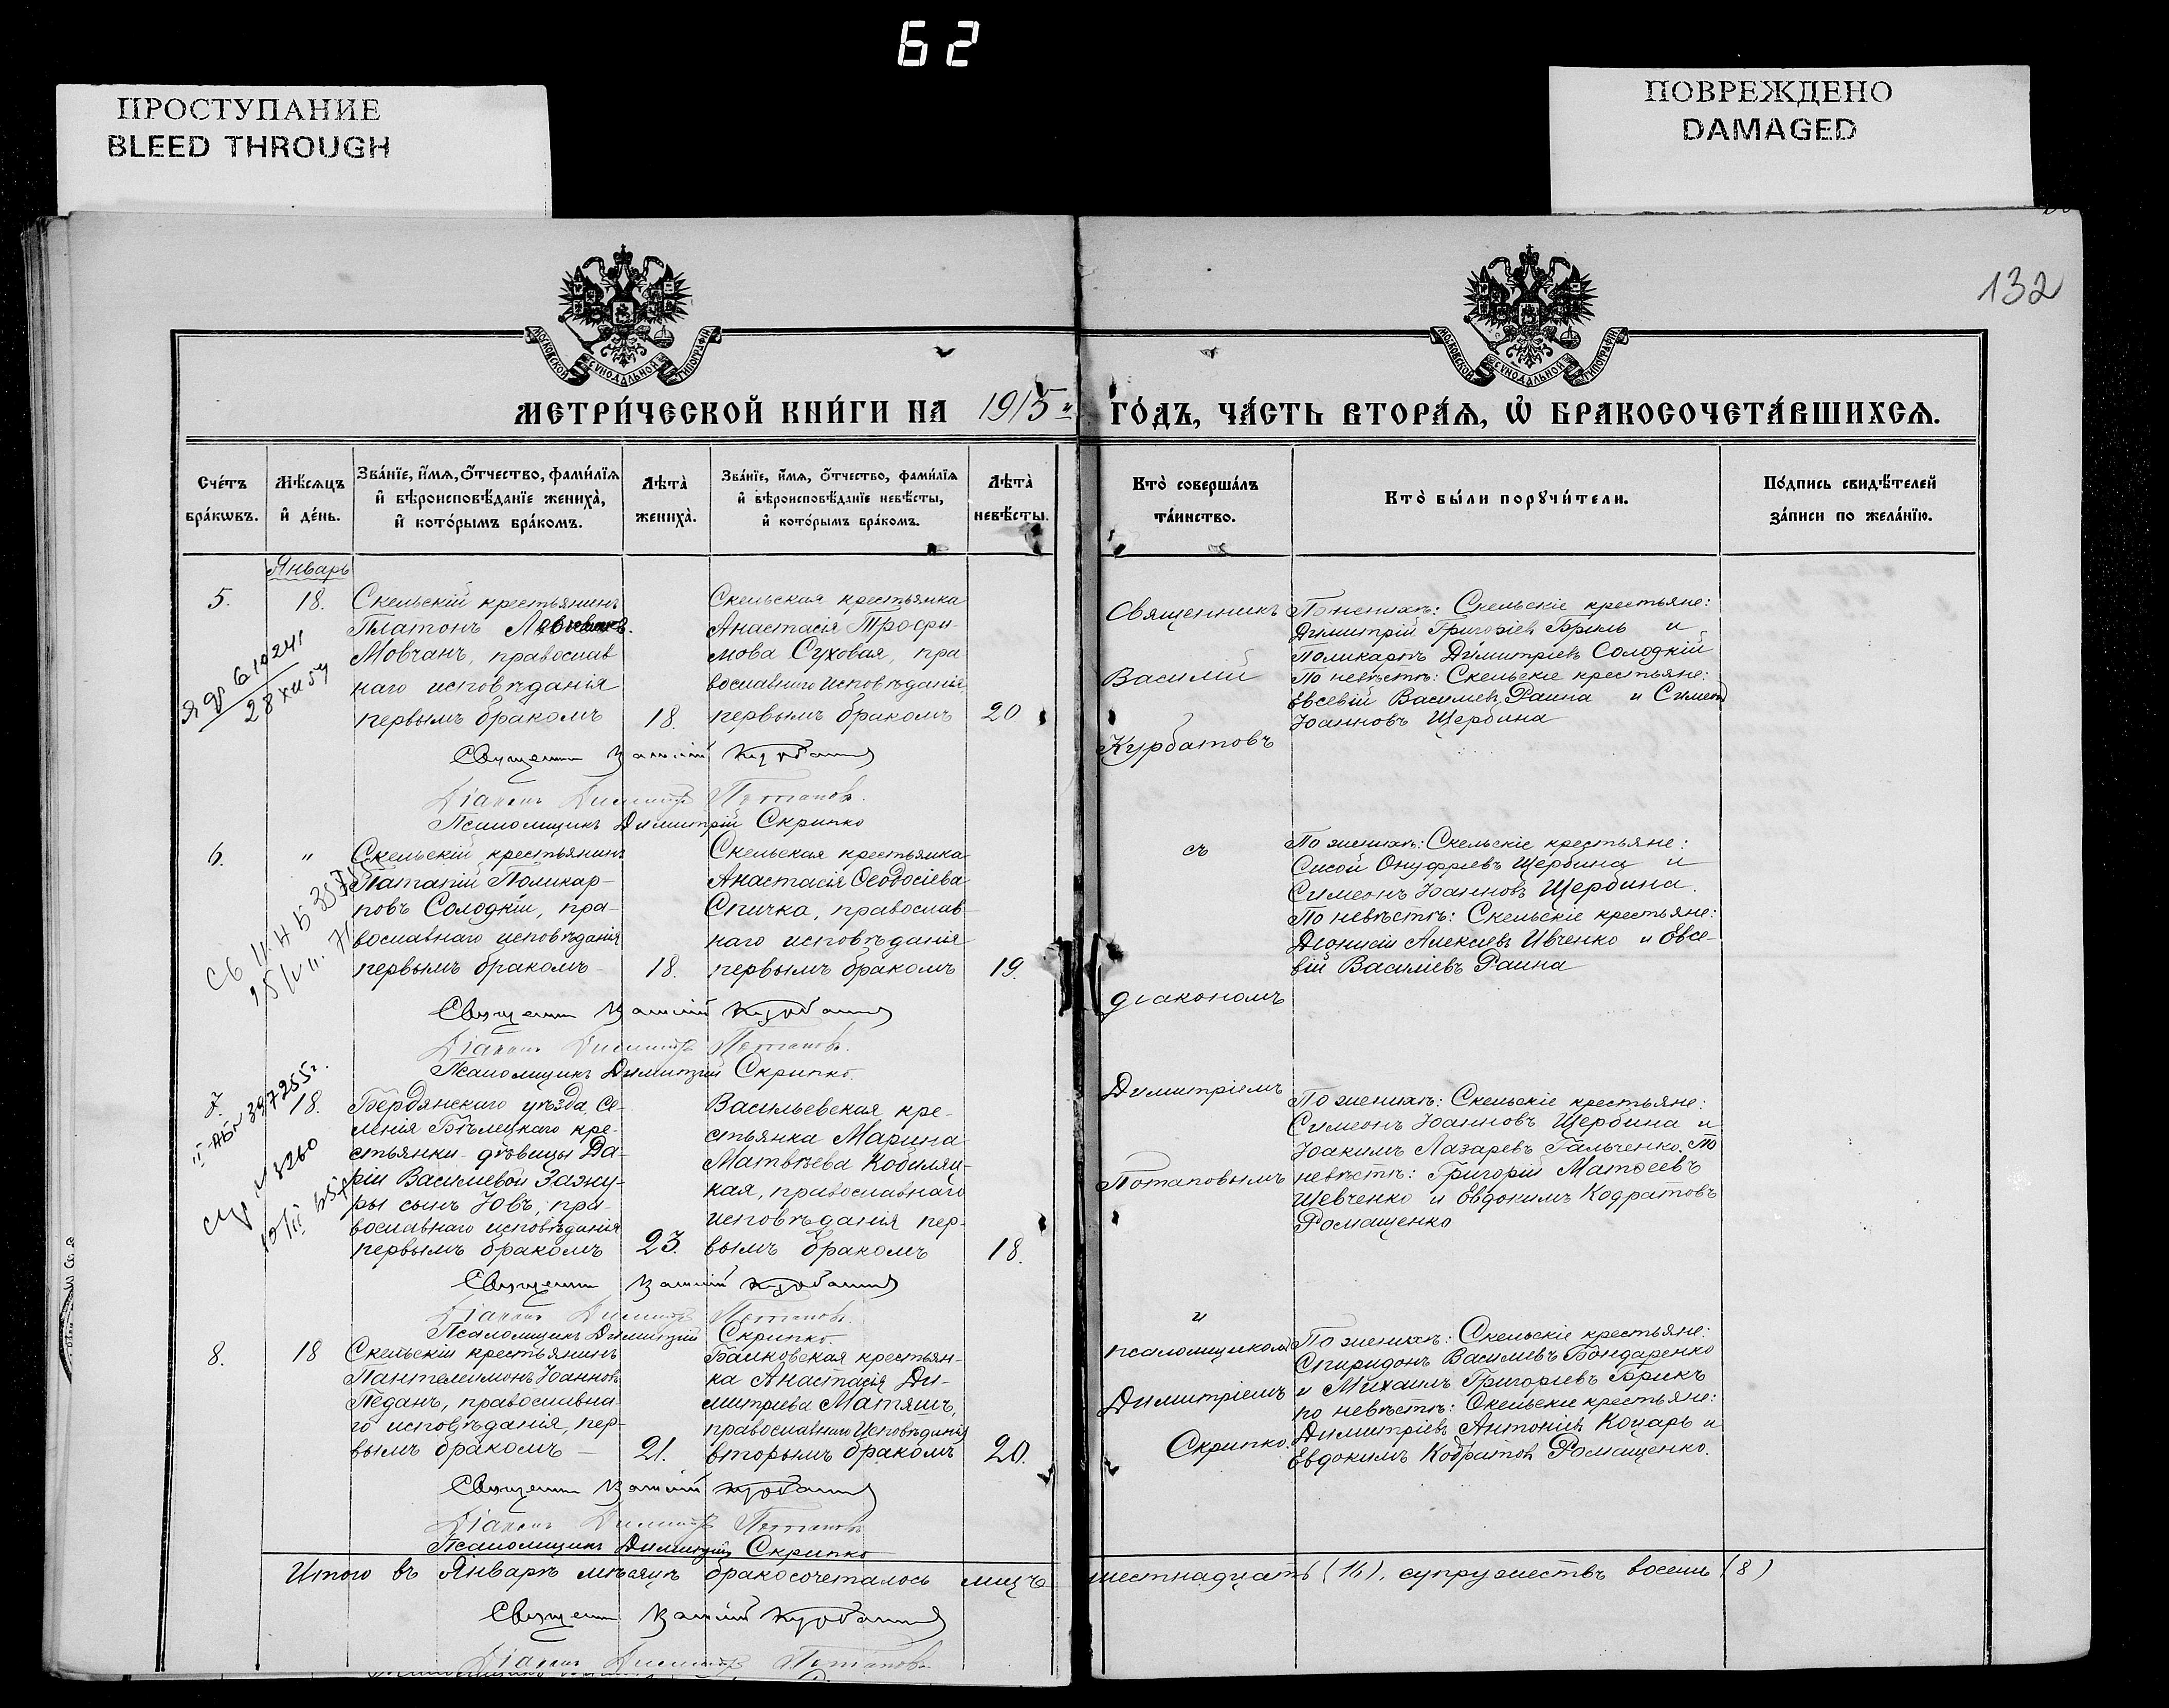 62
ПРОСТУПАНИЕ
BLEED THROUGH
ПОВРЕЖДЕНО
DAMAGED
132
МОСКОВСКОЙ СѴНОДАЛЬНОЙ ТИПОГРАФІИ
МОСКОВСКОЙ СѴНОДАЛЬНОЙ ТИПОГРАФІИ
МЕТРИ́ЧЕСКОЙ КНИ́ГИ НА 1915 й ГО́ДЪ, ЧА́СТЬ ВТОРА́Ѧ, Ѡ҆ БРАКОСОЧЕТА́ВШИХСѦ.
Сче́тъ бра́кѡвъ.
Мѣ́сѧцъ и҆ де́нь.
Зва́нїе, и҆́мѧ, ѻ҆́тчество, фами́лїѧ
и҆ вѣроисповѣ́данїе жениха̀,
и҆ кото́рымъ бра́комъ.
Лѣта̀ жениха̀.
Зва́нїе, и҆́мѧ, ѻ҆́тчество, фами́лїѧ
и҆ вѣроисповѣ́данїе невѣ́сты,
и҆ кото́рымъ бра́комъ.
Лѣта̀ невѣ́сты.
Кто̀ соверша́лъ та́инство.
Кто̀ бы́ли порꙋчи́тели.
По́дпись свидѣ́телей за́писи по жела́нїю.
Январь
5.
18.
Скельскій крестьянинъ
Платонъ
Мовчанъ, православ
наго исповѣданія
первымъ бракомъ
18.
Скельская крестьянка
Анастасія Трофи-
мова Суховая, пра
вославнаго исповѣданія
первымъ бракомъ
20
Священникъ
Василій
Курбатовъ
По женихѣ: Скельскіе крестьяне:
Димитрій Григоріевъ Брикъ и
Поликарпъ Димитріевъ Солодкій
По невѣстѣ: Скельскіе крестьяне:
Евсевій Василіевъ Раина и Симеон
Іоанновъ Щербина
28 XII 57
Священникъ Василій Курбатовъ
Діаконъ Димитрій Потаповъ.
Псаломщикъ Димитрій Скрипко
6.
"
Скельскій крестьянинъ
Патапій Поликар-
повъ Солодкій, пра-
вославнаго исповѣданія
первымъ бракомъ
18.
Скельская крестьянка
Анастасія Ѳеодосіева
Спичка, православ-
наго исповѣданія
первымъ бракомъ
19.
съ
діакономъ
По женихѣ: Скельскіе крестьяне:
Сисой Онуфріевъ Щербина и
Симеонъ Іоанновъ Щербина.
По невѣстѣ: Скельскіе крестьяне:
Діонисій Алексіевъ Ивченко и Евсе-
вій Василіевъ Раина
Священникъ Василій Курбатовъ
Діаконъ Димитрій Потаповъ.
Псаломщикъ Димитрій Скрипко.
7.
18.
Бердянскаго уѣзда, се-
ленія Бѣлецкаго кре-
стьянки дѣвицы Да-
ріи Василіевой Зажу-
ры сынъ Іовъ, пра-
вославнаго исповѣданія
первымъ бракомъ
23.
Васильевская кре-
стьянка Марина
Матвѣева Кобиляц-
кая, православнаго
исповѣданія пер-
вымъ бракомъ
18.
Димитріемъ
Потаповымъ
По женихѣ: Скельскіе крестьяне:
Симеонъ Іоанновъ Щербина и
Іоакимъ Лазаревъ Гальченко. По
невѣстѣ: Григорій Матѳеевъ
Шевченко и Евдокимъ Кодратовъ
Ромащенко
Священникъ Василій Курбатовъ
Діаконъ Димитрій Потаповъ.
Псаломщикъ Димитрій Скрипко.
8.
18
Скельскій крестьянинъ
Пантелеимонъ Іоанновъ
Педанъ, православна-
го исповѣданія, пер-
вымъ бракомъ
21.
Балковская крестьян-
ка Анастасія Ди-
митріева Матяшъ,
православнаго исповѣданія
вторымъ бракомъ
20.
и
псаломщикомъ
Димитріемъ
Скрипко.
По женихѣ: Скельскіе крестьяне:
Спиридонъ Василіевъ Бондаренко
и Михаилъ Григоріевъ Брикъ
по невѣстѣ: Скельскіе крестьяне:
Димитрій Антоніевъ Коцарь и
Евдокимъ Кодратовъ Ромащенко.
Священникъ Василій Курбатовъ
Діаконъ Димитрій Потаповъ
Псаломщикъ Димитрій Скрипко
Итого въ Январѣ мѣсяцѣ бракосочеталось лицъ шестнадцать (16), супружествъ восемь (8)
Священникъ Василій Курбатовъ
Діаконъ Димитрій Потаповъ.